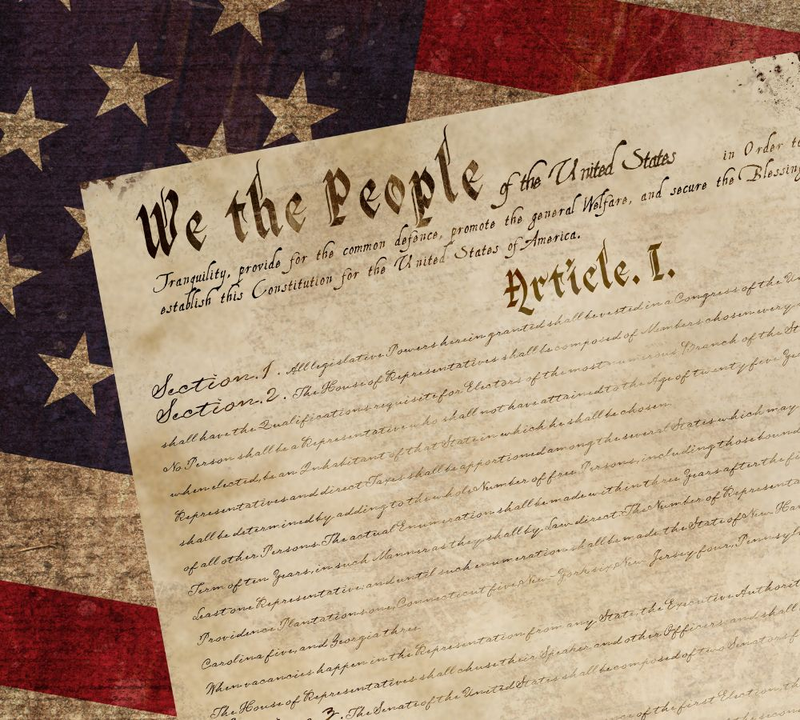 We the People of the United States in Order to
Tranquility, provide for the common defence, promote the general Welfare, and secure the Blessing
establish this Constitution for the United States of America.
Article. I.
Section. 1. All legislative Powers herein granted shall be vested in a Congress of the Un
Section. 2. The House of Representatives shall be composed of Members chosen every
shall have the Qualifications requisite for Electors of the most numerous Branch of the St
No Person shall be a Representative who shall not have attained to the Age of twenty five Yea
when elected, be an Inhabitant of that State in which he shall be chosen.
Representatives and direct Taxes shall be apportioned among the several States which may
shall be determined by adding to the whole Number of free Persons, including those bound
of all other Persons. The actual Enumeration shall be made within three Years after the fi
Term of ten Years, in such Manner as they shall by Law direct. The Number of Representa
Least one Representative; and until such enumeration shall be made, the State of New Ham
Providence Plantations one, Connecticut five, New-York six, New Jersey four, Pennsylv
Carolina five, and Georgia three.
When vacancies happen in the Representation from any State, the Executive Authorit
The House of Representatives shall chuse their Speaker and other Officers; and shall
3. The Senate of the United States shall be composed of two Senators f
of the first Election, th